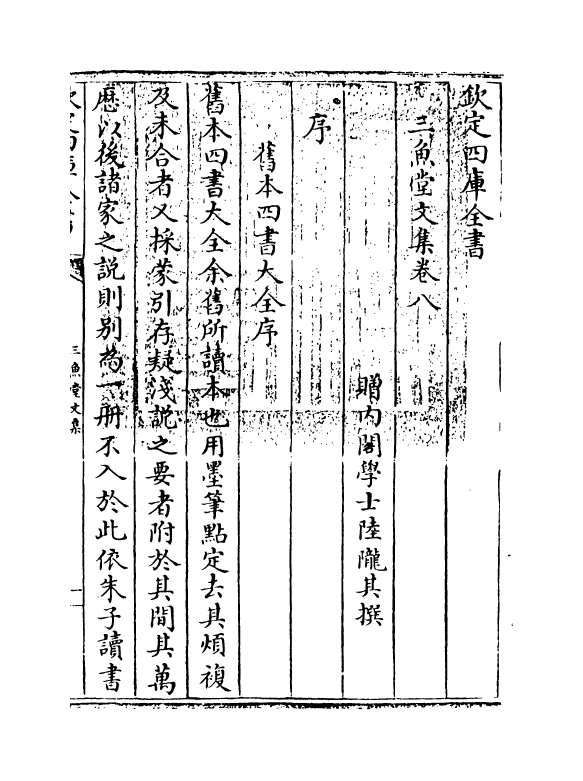 欽定四庫全書
三魚堂文集卷八
贈內閣學士陸隴其撰
序
舊本四書大全序
舊本四書大全余舊所讀本也用墨筆點定去其煩複
及未合者又採蒙引存疑淺說之要者附於其間其萬
厯以後諸家之説則別為一册不入於此依朱子讀書
三魚堂文集
一